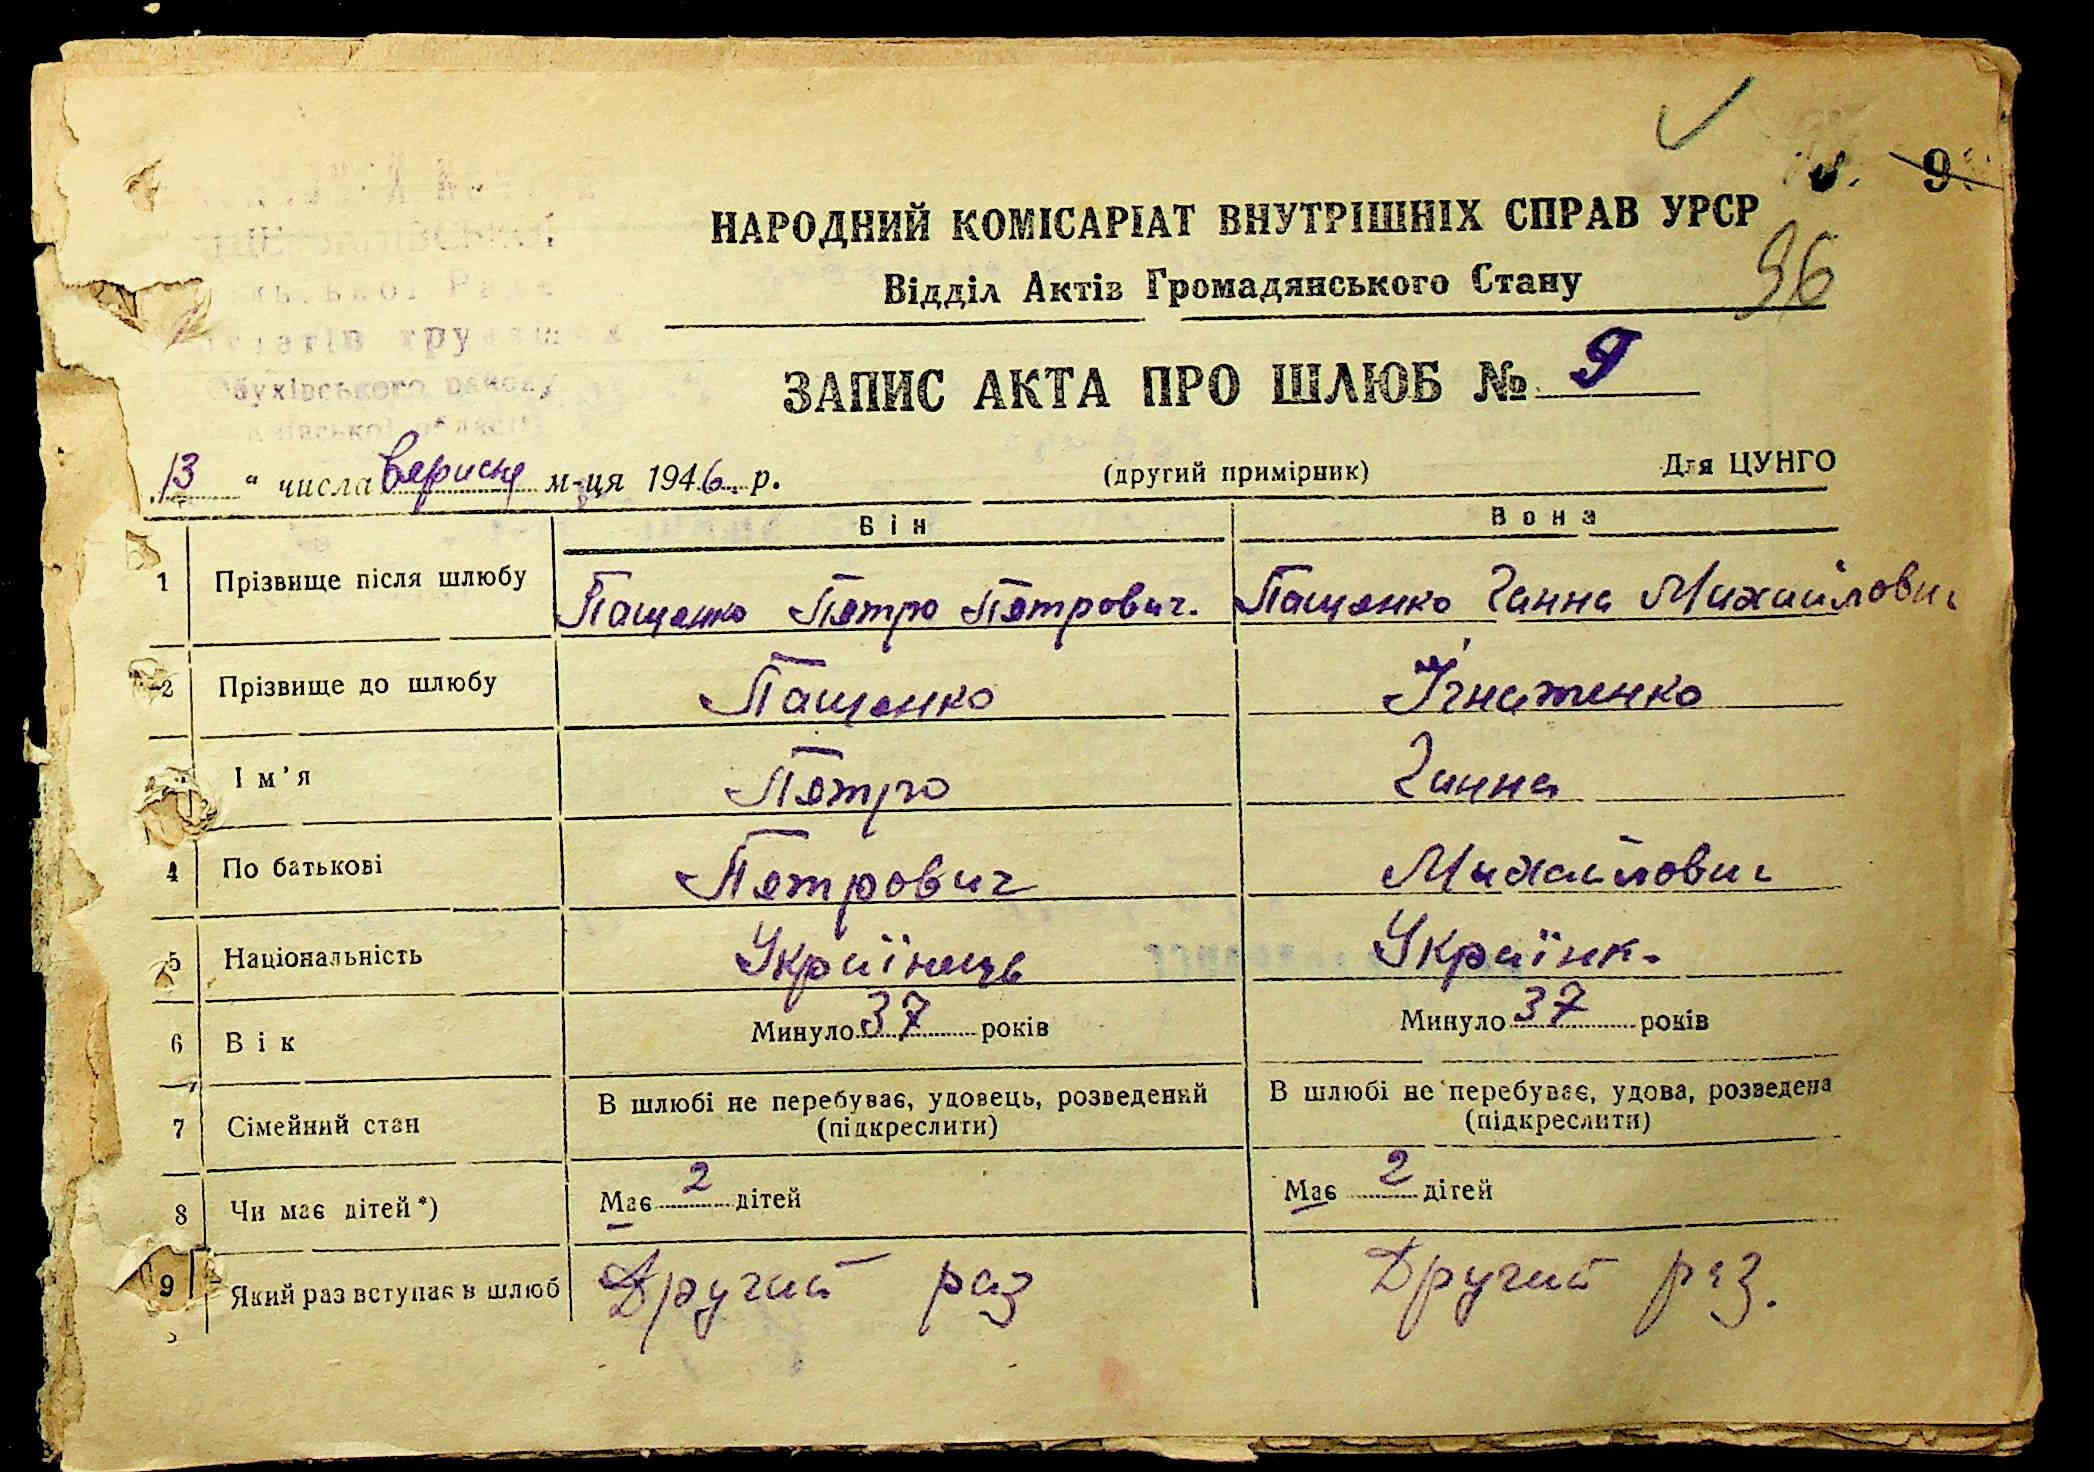 9
НАРОДНИЙ КОМІСАРІАТ ВНУТРІШНІХ СПРАВ УРСР
Відділ Актів Громадянського Стану
96
ЗАПИС АКТА ПРО ШЛЮБ № 9
Обухівського району
13 " числа вересня м-ця 1946 р. (другий примірник) Для ЦУНГО
Він Вона
1 Прізвище після шлюбу Пащенко Петро Петрович. Пащенко Ганна Михайлович
2 Прізвище до шлюбу Пащенко Ігнатенко
Ім'я Петро Ганна
4 По батькові Петрович Михайлович
5 Національність Українець Українк.
6 Вік Минуло 37 років Минуло 37 років
7 Сімейний стан В шлюбі не перебуває, удовець, розведений (підкреслити) В шлюбі не перебуває, удова, розведена (підкреслити)
8 Чи має дітей *) Має 2 дітей Має 2 дітей
9 Який раз вступає в шлюб Другий раз Другий раз.